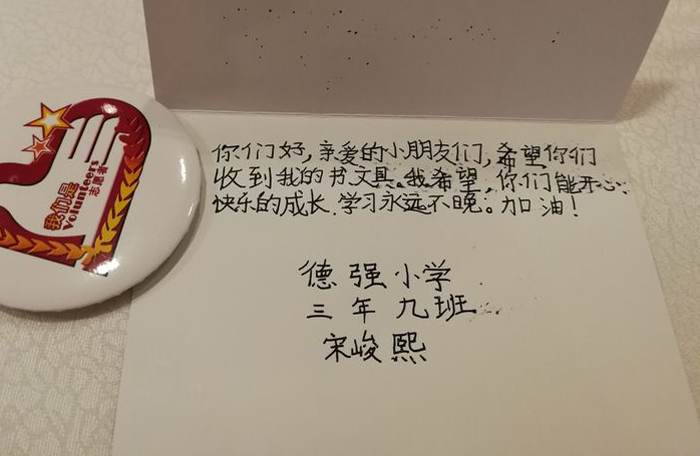 你们好,亲爱的小朋友们,希望你们
收到我的书文具。我希望,你们能开心、
快乐的成长.学习永远不晚。加油!
德强小学
三年九班
宋峻熙
我们是
volunteers
志愿者